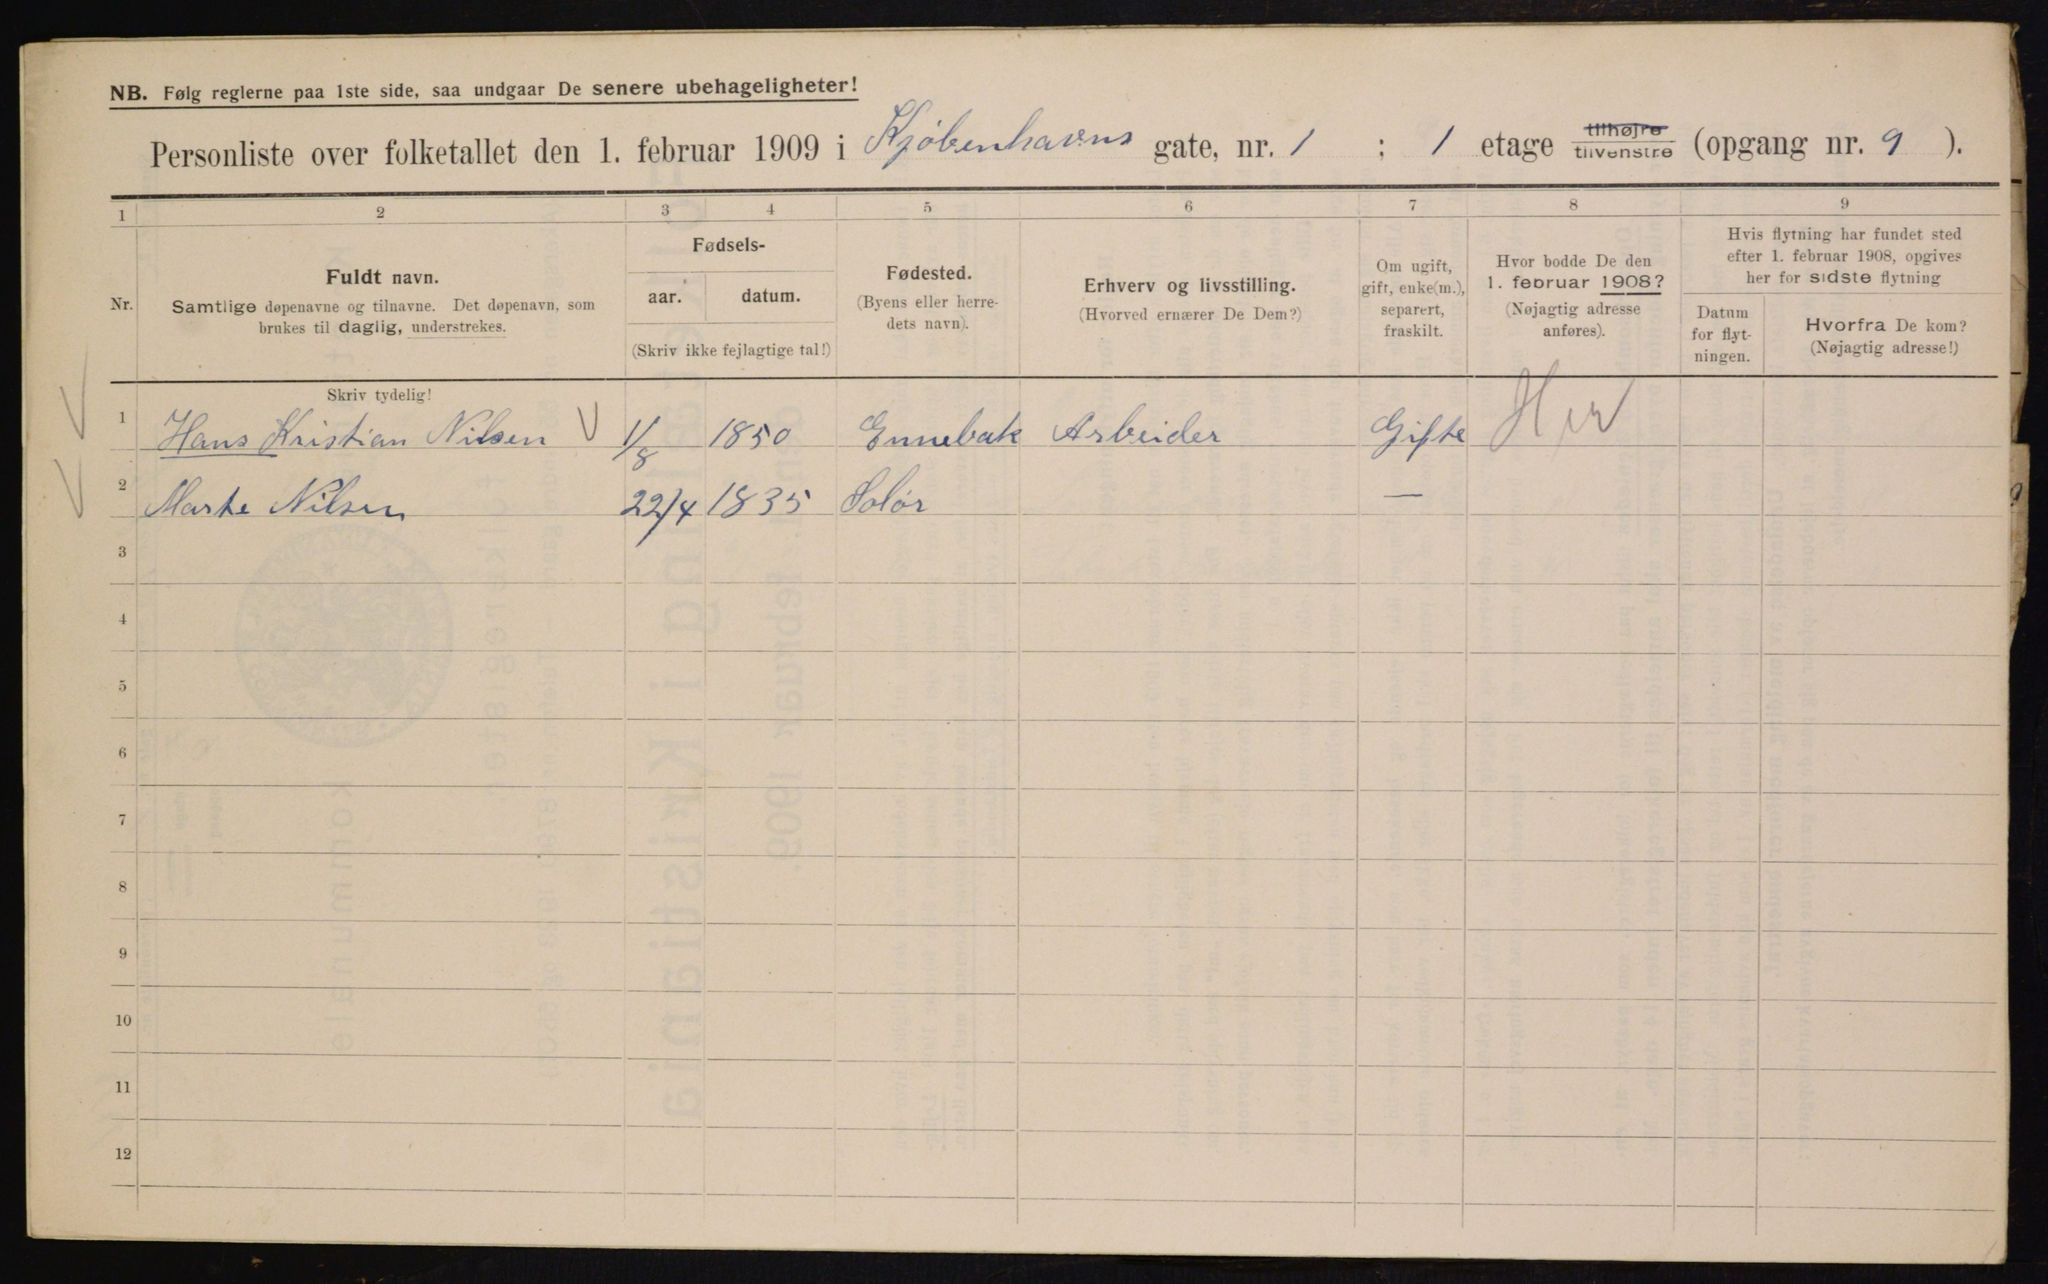 NB. Følg reglerne paa 1ste side, saa undgaar De senere ubehageligheter!
Personliste over folketallet den 1. februar 1909 i Kjøbenhavns gate, nr. 1 ; 1 etage tilhøjre tilvenstre (opgang nr. 9 ).
1 2 3 4 5 6 7 8 9
Nr.
Fuldt navn.
Samtlige døpenavne og tilnavne. Det døpenavn, som
brukes til daglig, understrekes.
Fødsels-
aar. datum.
(Skriv ikke fejlagtige tal!)
Fødested.
(Byens eller herre-
dets navn).
Erhverv og livsstilling.
(Hvorved ernærer De Dem?)
Om ugift,
gift, enke(m.),
separert,
fraskilt.
Hvor bodde De den
1. februar 1908?
(Nøjagtig adresse
anføres).
Hvis flytning har fundet sted
efter 1. februar 1908, opgives
her for sidste flytning
Datum
for flyt-
ningen.
Hvorfra De kom?
(Nøjagtig adresse!)
Skriv tydelig!
1 Hans Kristian Nilsen V 1/8 1850 Ennebak Arbeider Gifte Her
2 Marte Nilsen 22/4 1835 Solør —
3
4
5
6
7
8
9
10
11
12